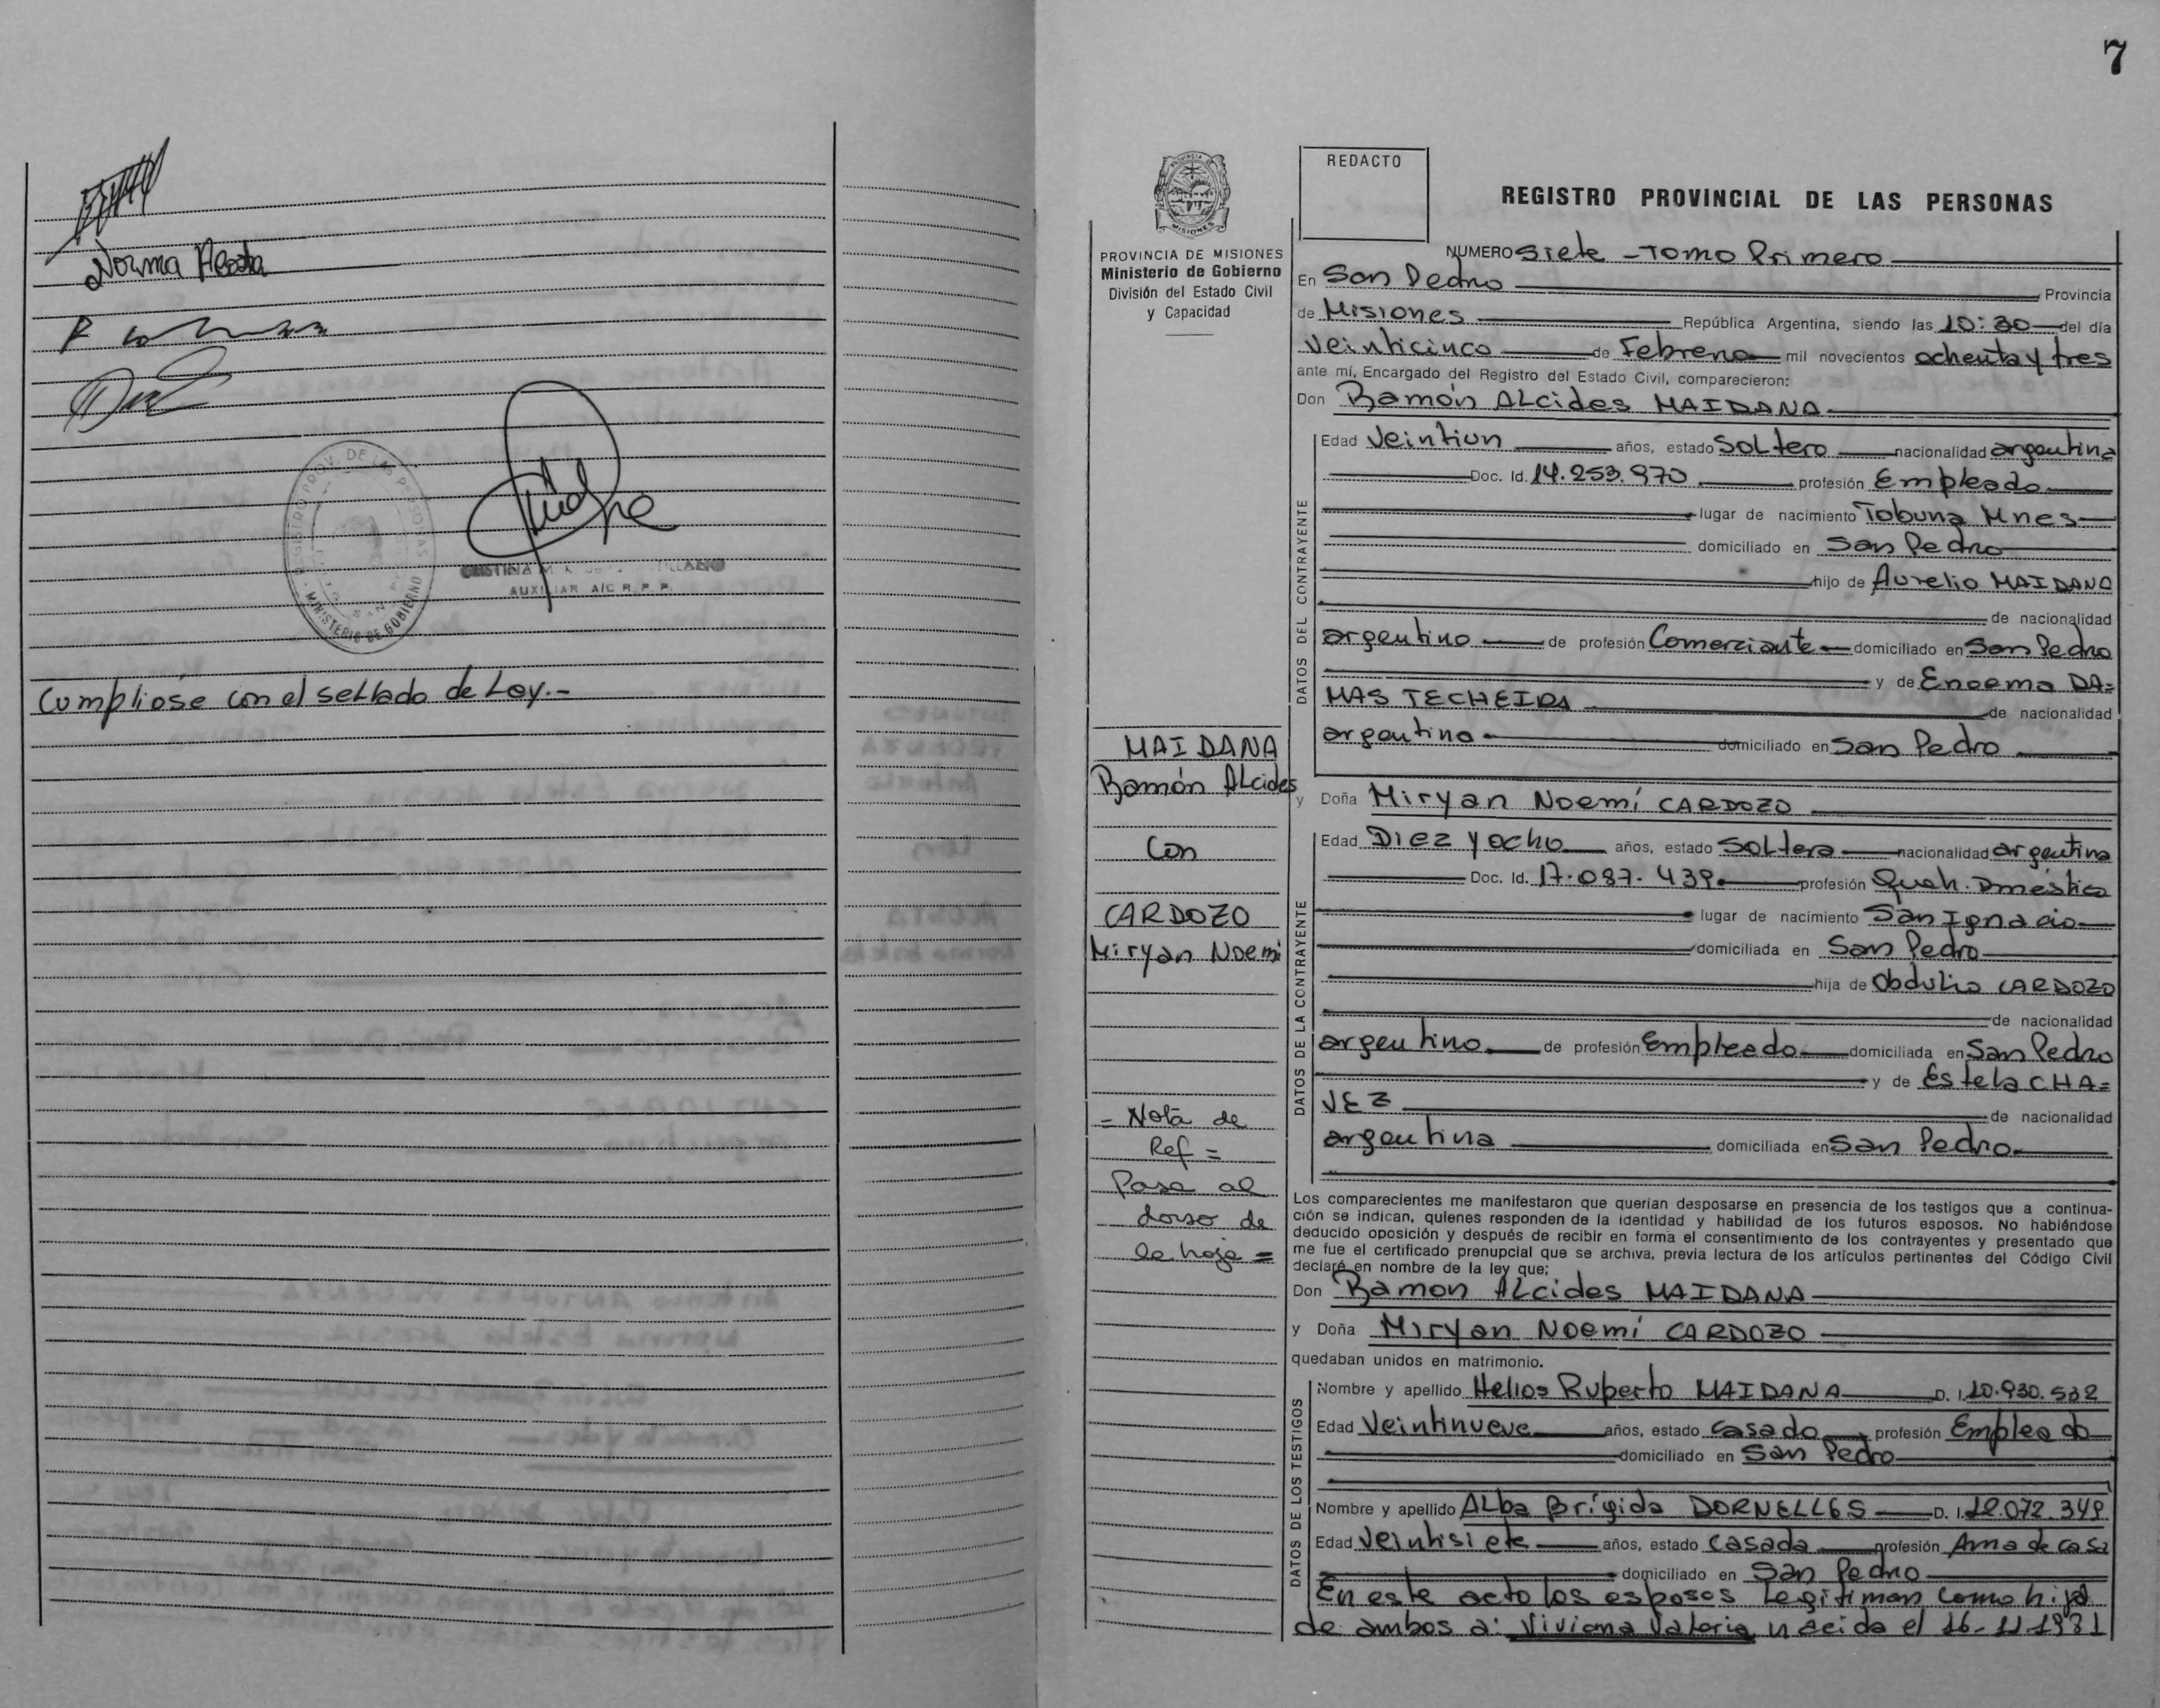 Norma Acosta
Cumpliose con el sellado de Ley.-
REGISTRO PROV. DE LAS PERSONAS
MINISTERIO DE GOBIERNO
CRISTINA
AUXILIAR A/C R. P. P.
7
REDACTO
REGISTRO PROVINCIAL DE LAS PERSONAS
PROVINCIA DE MISIONES
Ministerio de Gobierno
División del Estado Civil
y Capacidad
NUMERO Siete - Tomo Primero
En San Pedro Provincia
de Misiones República Argentina, siendo las 10:30 del día
veinticinco de Febrero mil novecientos ochenta y tres
ante mí, Encargado del Registro del Estado Civil, comparecieron:
Don Ramón Alcides MAIDANA
DATOS DEL CONTRAYENTE
Edad Veintiun años, estado Soltero nacionalidad argentina
Doc. Id. 14.253.970 profesión Empleado
lugar de nacimiento Tobuna Mnes
domiciliado en San Pedro
hijo de Aurelio MAIDANA
de nacionalidad
argentino de profesión Comerciante domiciliado en San Pedro
y de Enoema DA=
MAS TECHEIRA de nacionalidad
argentina domiciliado en San Pedro
y Doña Miryan Noemí CARDOZO
DATOS DE LA CONTRAYENTE
Edad Diez y ocho años, estado Soltera nacionalidad argentina
Doc. Id. 17.087.439 profesión Queh. Dméstica
lugar de nacimiento San Ignacio
domiciliada en San Pedro
hija de Obdulio CARDOZO
de nacionalidad
argentino de profesión Empleado domiciliada en San Pedro
y de Estela CHA=
VEZ de nacionalidad
argentina domiciliada en San Pedro
MAIDANA
Ramón Alcides
Con
CARDOZO
Miryan Noemi
= Nota de
Ref =
Pasa al
dorso de
la hoja =
Los comparecientes me manifestaron que querían desposarse en presencia de los testigos que a continua-
ción se indican, quienes responden de la identidad y habilidad de los futuros esposos. No habiéndose
deducido oposición y después de recibir en forma el consentimiento de los contrayentes y presentado que
me fue el certificado prenupcial que se archiva, previa lectura de los artículos pertinentes del Código Civil
declaré en nombre de la ley que:
Don Ramon Alcides MAIDANA
y Doña Miryan Noemí CARDOZO
quedaban unidos en matrimonio.
DATOS DE LOS TESTIGOS
Nombre y apellido Helios Ruperto MAIDANA D. I. 10.930.522
Edad Veintinueve años, estado casado profesión Empleado
domiciliado en San Pedro
Nombre y apellido Alba Brígida DORNELLES D. I. 12.072.349
Edad Veintisiete años, estado casada profesión Ama de casa
domiciliado en San Pedro
En este acto los esposos Legitiman como hija
de ambos a: Viviana Valeria nacida el 16-11-1981